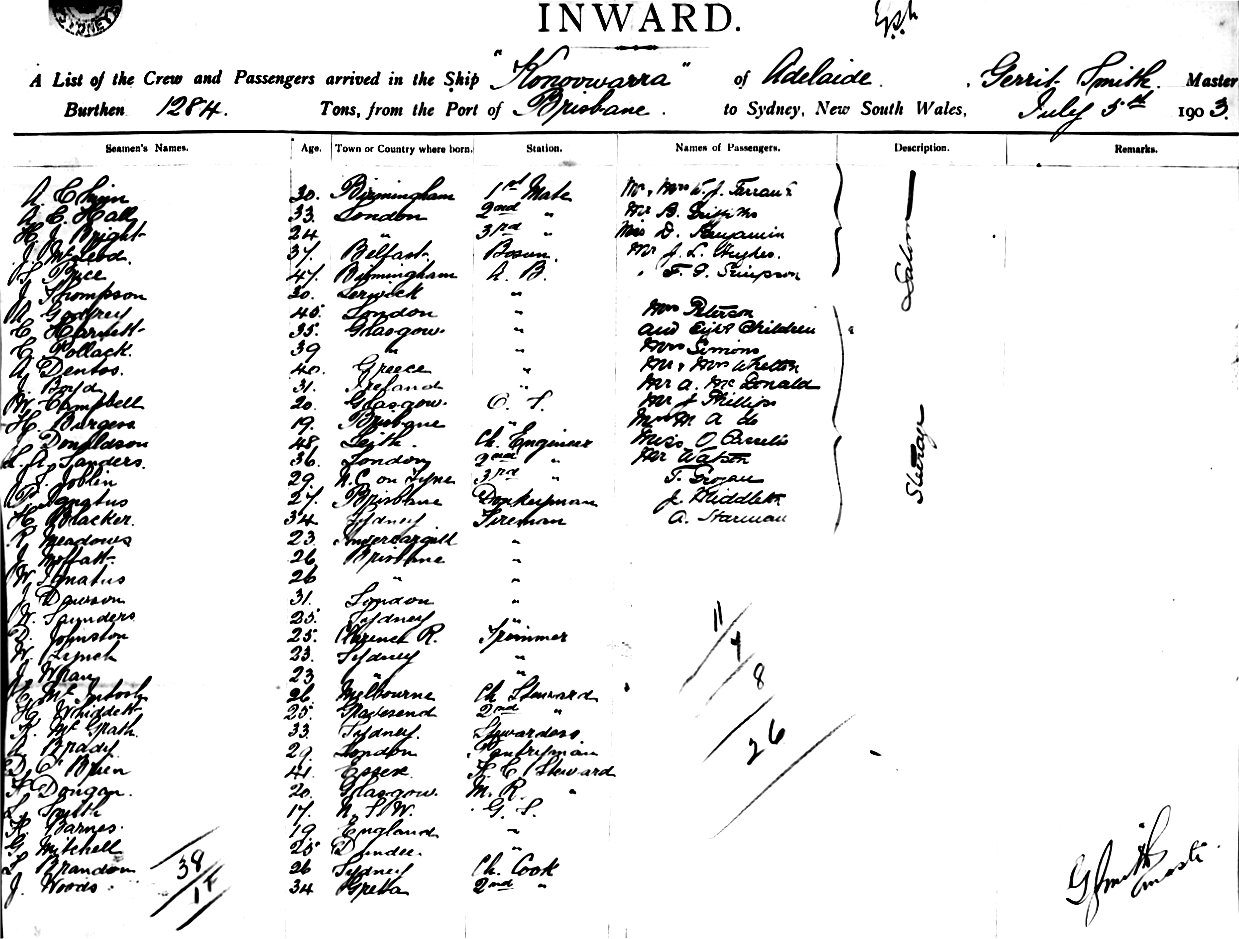 SYDNEY
INWARD.
A List of the Crew and Passengers arrived in the Ship "Konoowarra" of Adelaide. Gerrit Smith. Master
Burthen 1284. Tons, from the Port of Brisbane. to Sydney, New South Wales, July 5th 1903.
Seamen's Names. Age. Town or Country where born. Station. Names of Passengers. Description. Remarks.
A 30. Birmingham 1st Mate Mr & Mrs
A. C. Hall 33. London 2nd " Mr B.
H. J. Bright 24 " 3rd " Miss D. Benjamin
J. McLeod. 37. Belfast. Bosun. Mr J. L. Hughes.
Price 47. Birmingham A. B. " Simpson
Saloon
J. Thompson 30. Lerwick "
A Godfrey 45. London " Mrs Peterson
C. 35. Glasgow " and Eight Children
C. Pollack. 39 " " Mrs Simons
A. Dentos. 40. Greece " Mr & Mrs Whelton
J. Boyd 31. Ireland " Mr A. McDonald
W. Campbell 20. Glasgow O. S. Mr J Phillips
H. Burgess 19. Brisbane " Mrs M A do
J. Donaldson 48. Leith. Ch. Engineer Miss O
Sanders. 36. London 2nd " Mr Watson
Steerage
J. Joblin 29. N.C. on Tyne 3rd " T. Grogan
P. Ignatus 27. Brisbane Donkeyman J.
H. Blacker. 34. Sydney Fireman A. Starman
R. Meadows 23. Invercargill "
J. Moffatt 26 Brisbane "
W. Ignatus 26 " "
J. Dawson 31. London "
W. Saunders 25. Sydney "
D. Johnston 25. Clarence R. Trimmer
W. Lynch 23. Sydney "
J. Wran 23 " "
C. McIntosh 26 Melbourne Ch. Steward
H. Whiddett 25. Gravesend 2nd "
K. McGrath. 33. Sydney. Stewardess
A. Brady 29. London Pantryman
D. O'Brien 41. Essex. F. C. Steward
Dongan. 20. Glasgow. M. R. "
Smith 17. N. S. W. G. S.
Barnes. 19. England "
G. Mitchell 25. Dundee. "
Brandon 26 Sydney Ch. Cook
J. Woods. 34 Greta 2nd "
11
4
8
26
38
1
G Smith
Master